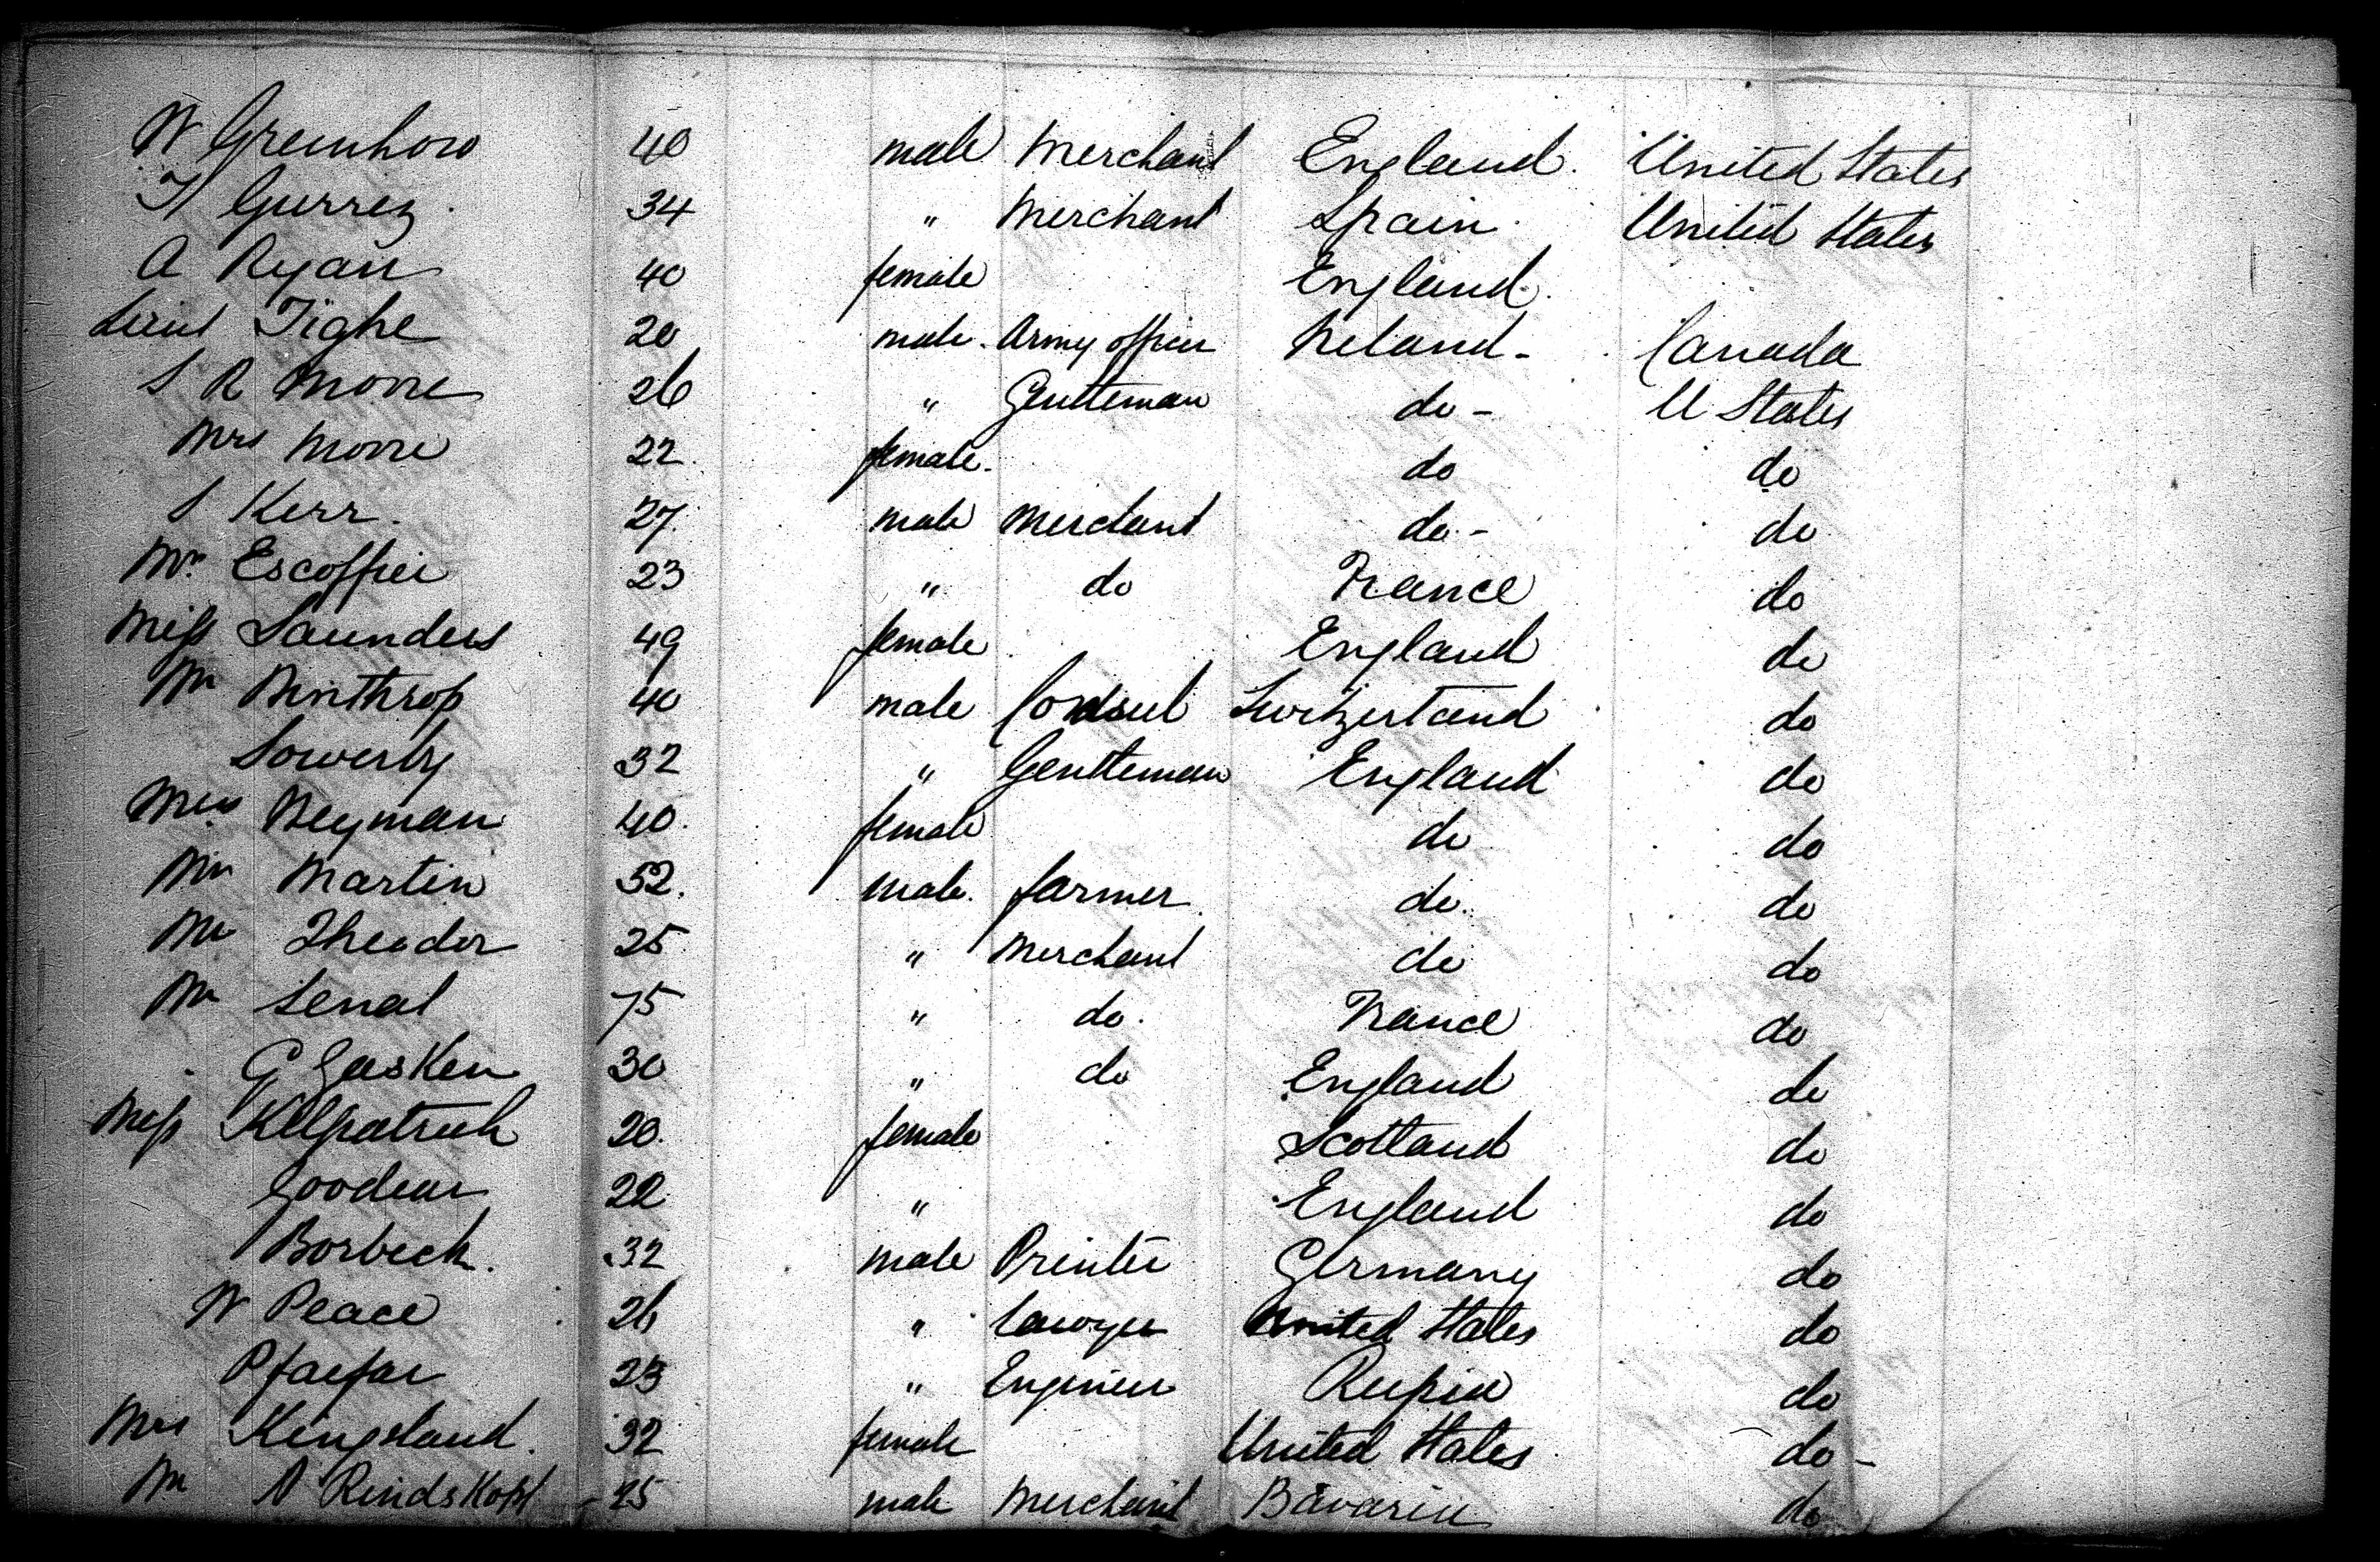 W Greenhow 40 male Merchant England. United States
H Gurrez. 34 " Merchant Spain. United States
A Ryan 40 female England.
Lieut Tighe 20 male. Army officer Ireland - Canada
S R Moore 26 " Gentleman do - U States
Mrs Moore 22. female. do do
S Kerr. 27. male Merchant do. - do
Mr. Escoffier 23 " do France do
Miss Saunders 49 female England do
Mr Winthrop 40 male Consul Switzerland do
Sowerby 32 " Gentleman England do
Mrs Weyman 40. female do do
Mr Martin 52. male. farmer. do. do
Mr Theodor 25 " Merchant do do
Mr Senal 75 " do. France do
G Gasken 30 " do England do
Miss Kilpatrick 20. female Scotland do
Goodear 22 " England do
Borbeck. 32 male Printer Germany do
W Peace 26 " Lawyer United States do
Pfaefar 23 " Engineer Russia do
Mrs Kingsland. 32 female United States do -
Mr A Rindskopf 25 male Merchant Bavaria do